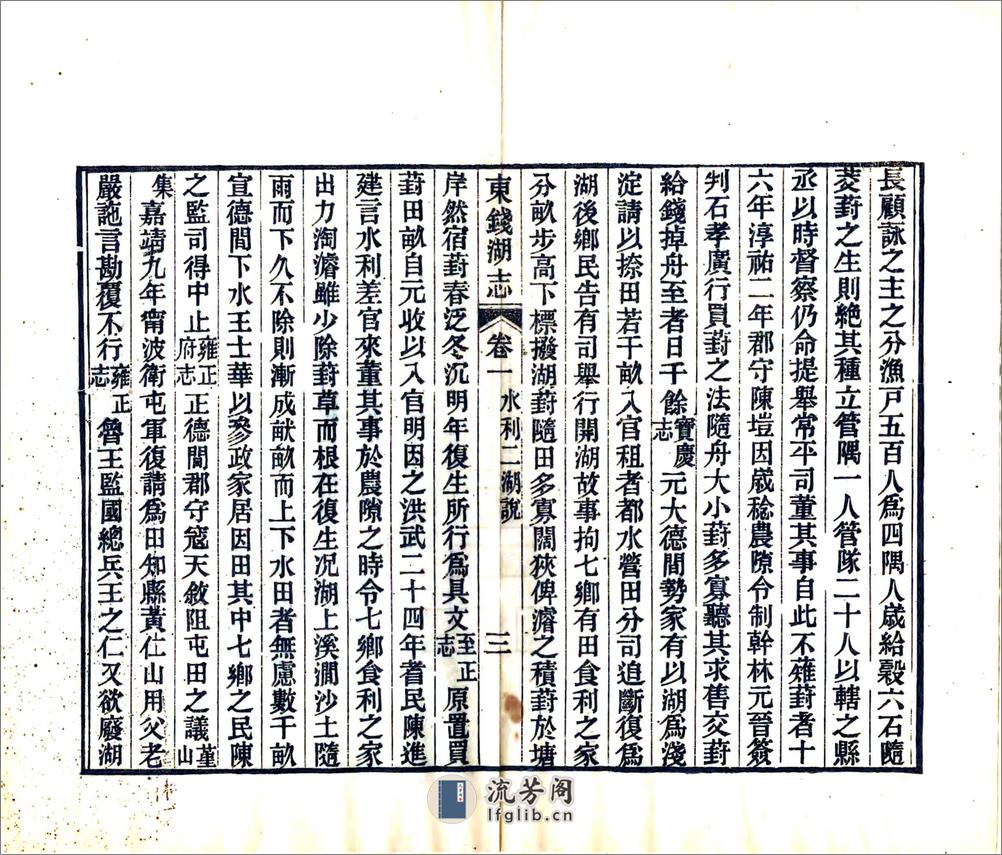 長顧詠之主之分漁戸五百人爲四隅人歲給穀六石隨
茭葑之生則絶其種立管隅一人管隊二十人以轄之縣
丞以時督察仍命提舉常平司董其事自此不薙葑者十
六年淳祐二年郡守陳塏因歲稔農隙令制幹林元晉簽
判石孝廣行買葑之法隨舟大小葑多寡聽其求售交葑
給錢掉舟至者日千餘寶慶志元大德間勢家有以湖爲淺
淀請以捺田若干畝入官租者都水營田分司追斷復爲
湖後鄉民告有司舉行開湖故事拘七鄉有田食利之家
分畝步高下標撥湖葑隨田多寡闊狹俾濬之積葑於塘
東錢湖志 卷一 水利二湖說 三
岸然宿葑春泛冬沉明年復生所行爲具文至正志原置買
葑田畝自元收以入官明因之洪武二十四年耆民陳進
建言水利差官來董其事於農隙之時令七鄉食利之家
出力淘濬雖少除葑草而根在復生况湖上溪澗沙土隨
雨而下久不除則漸成畎畝而上下水田者無慮數千畝
宣德間下水王士華以參政家居因田其中七鄉之民陳
之監司得中止雍正府志正德間郡守寇天敘阻屯田之議堇山
集嘉靖九年甯波衛屯軍復請爲田知縣黃仁山用父老
嚴詘言勘覆不行雍正志魯王監國總兵王之仁又欲廢湖
流芳阁
lfglib.cn